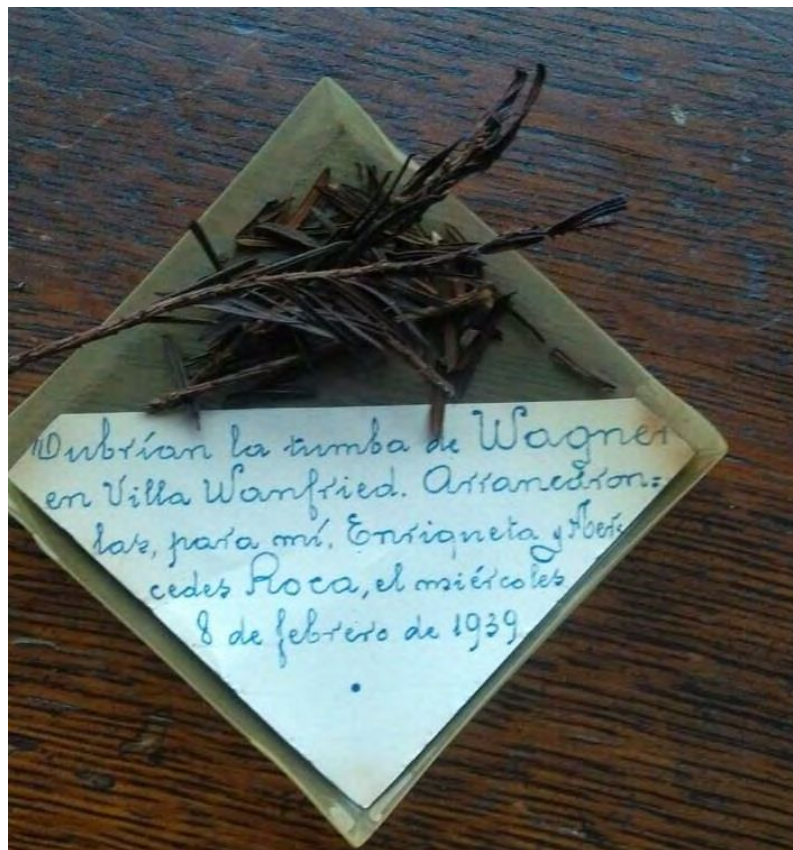 Cubrían la tumba de Wagner
en Villa Wanfried. Arrancáron=
las, para mí, Enriqueta y Mer=
cedes Roca, el miércoles
8 de febrero de 1939